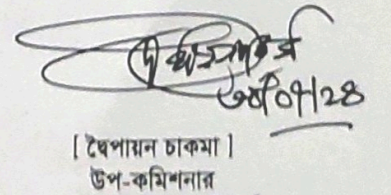 ৩০/০৭/২৪
[ দ্বৈপায়ন চাকমা ]
উপ-কমিশনার